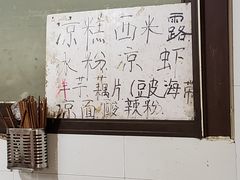 凉糕西米露
冰粉凉虾
牛芋藕片(豆皮海带
凉面酸辣粉